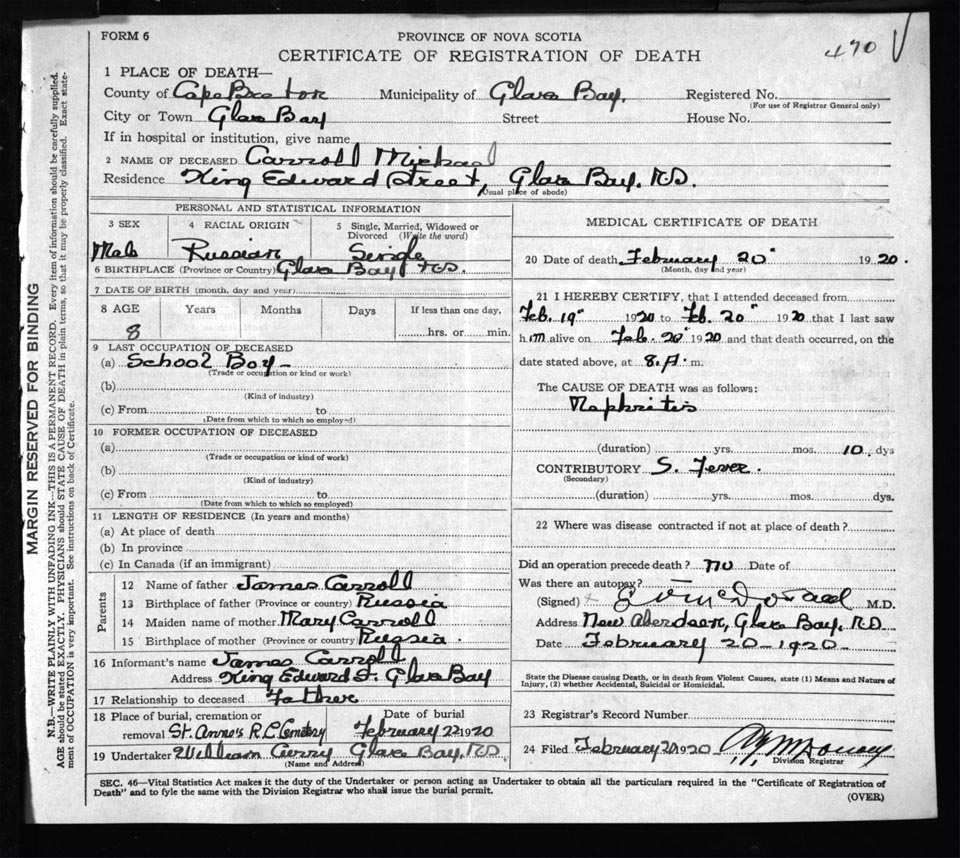 FORM 6
PROVINCE OF NOVA SCOTIA
490
CERTIFICATE OF REGISTRATION OF DEATH
1 PLACE OF DEATH—
County of Cape Breton Municipality of Glace Bay. Registered No.
(For use of Registrar General only)
City or Town Glace Bay Street House No.
If in hospital or institution, give name
2 NAME OF DECEASED Carroll Michael
Residence King Edward Street, Glace Bay. N.S.
(Usual place of abode)
PERSONAL AND STATISTICAL INFORMATION
3 SEX 4 RACIAL ORIGIN 5 Single, Married, Widowed or Divorced (Write the word)
Male Russian Single
6 BIRTHPLACE (Province or Country) Glace Bay N.S.
7 DATE OF BIRTH (month, day and year)
8 AGE Years Months Days If less than one day,
8 hrs. or min.
9 LAST OCCUPATION OF DECEASED
(a) School Boy—
(Trade or occupation or kind or work)
(b)
(Kind of industry)
(c) From to
(Date from which to which so employed)
10 FORMER OCCUPATION OF DECEASED
(a)
(Trade or occupation or kind of work)
(b)
(Kind of industry)
(c) From to
(Date from which to which so employed)
11 LENGTH OF RESIDENCE (In years and months)
(a) At place of death
(b) In province
(c) In Canada (if an immigrant)
Parents
12 Name of father James Carroll
13 Birthplace of father (Province or country) Russia
14 Maiden name of mother Mary Carroll
15 Birthplace of mother (Province or country) Russia.
16 Informant's name James Carroll
Address King Edward St. Glace Bay
17 Relationship to deceased Father
18 Place of burial, cremation or removal St. Anne's R.C. Cemetery Date of burial February 22 1920
19 Undertaker William Curry Glace Bay, N.S
(Name and Address)
MEDICAL CERTIFICATE OF DEATH
20 Date of death February 20" 1920.
(Month, day and year)
21 I HEREBY CERTIFY, that I attended deceased from
Feb. 19" 1920 to Feb. 20" 1920 that I last saw
him alive on Feb. 20" 1920 and that death occurred, on the
date stated above, at 8.A. m.
The CAUSE OF DEATH was as follows:
Nephritis
(duration) yrs. mos. 10. dys
CONTRIBUTORY S. Fever.
(Secondary)
(duration) yrs. mos. dys.
22 Where was disease contracted if not at place of death?
Did an operation precede death? No Date of
Was there an autopsy?
(Signed) M.D.
Address New Aberdeen, Glace Bay, N.S.
Date February 20—1920—
State the Disease causing Death, or in death from Violent Causes, state (1) Means and Nature of Injury, (2) whether Accidental, Suicidal or Homicidal.
23 Registrar's Record Number
24 Filed February 1920
Division Registrar
SEC. 46—Vital Statistics Act makes it the duty of the Undertaker or person acting as Undertaker to obtain all the particulars required in the "Certificate of Registration of
Death" and to fyle the same with the Division Registrar who shall issue the burial permit.
(OVER)
MARGIN RESERVED FOR BINDING
N.B.—WRITE PLAINLY WITH UNFADING INK—THIS IS A PERMANENT RECORD. Every item of information should be carefully supplied.
AGE should be stated EXACTLY. PHYSICIANS should STATE CAUSE OF DEATH in plain terms, so that it may be properly classified. Exact state-
ment of OCCUPATION is very important. See instructions on back of Certificate.